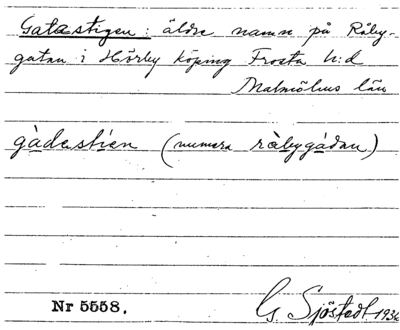 Gatastigen: äldre namn på Råby-
gatan i Hörby köping Frosta h:d
Malmöhus län
gàdestíen (numera ràbygádan)
Nr 5558.
G. Sjöstedt 1936